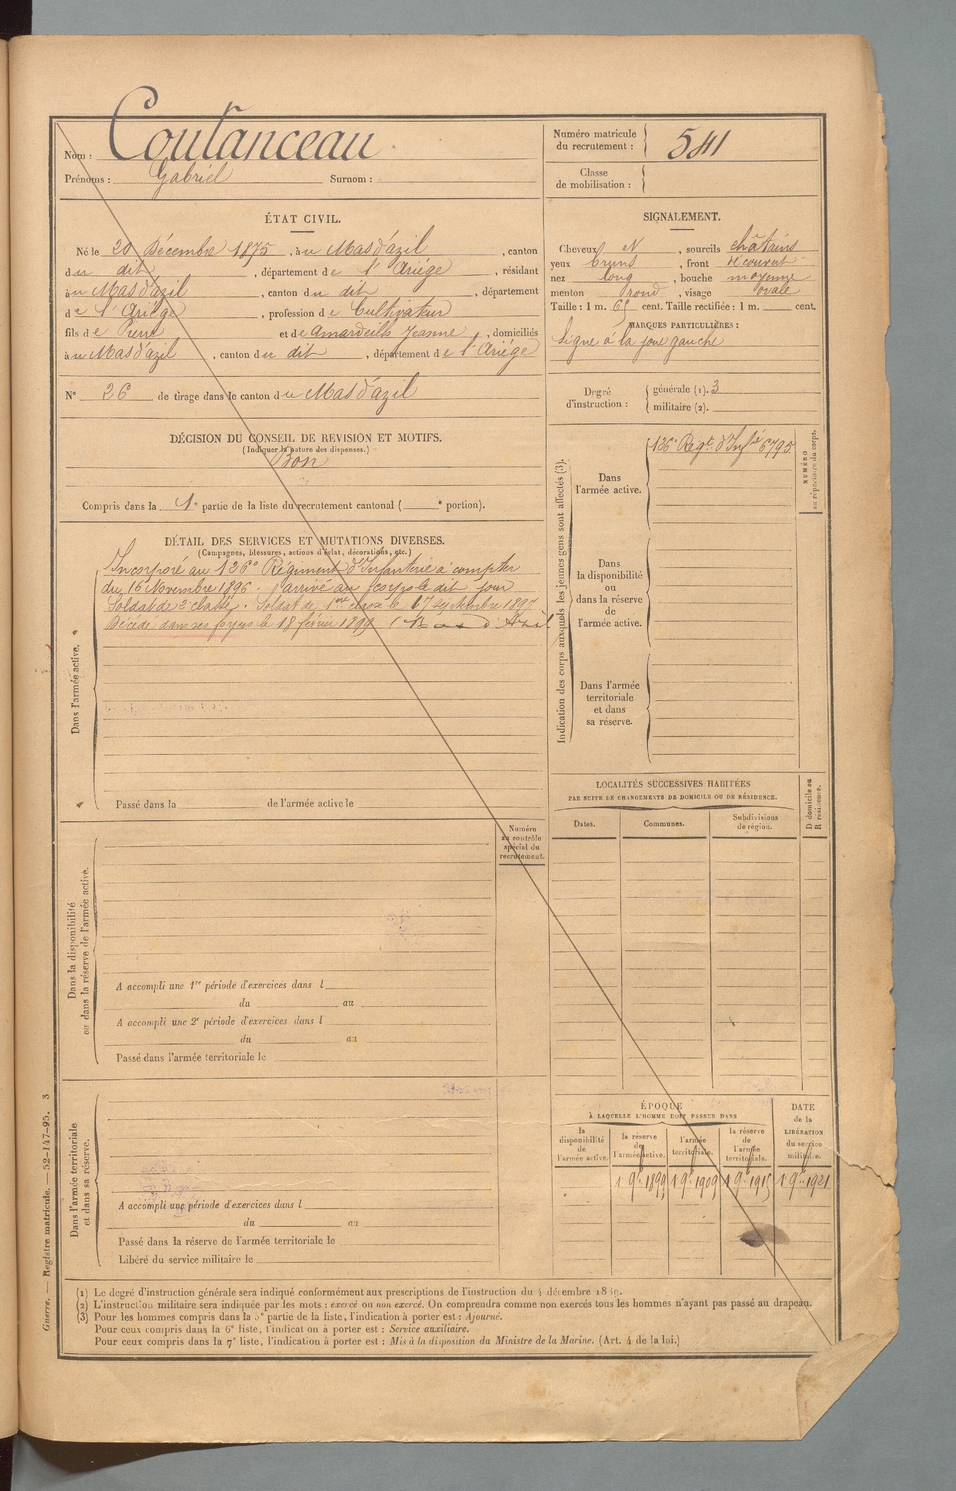 Nom : Coutanceau
Prénoms : Gabriel Surnom :
Numéro matricule
du recrutement : 541
Classe
de mobilisation :
ÉTAT CIVIL.
Né le 20 Décembre 1875, à u Mas d'azil, canton
d u dit, département d e l'Ariége, résidant
à u Mas d'azil, canton d u dit, département
d e l'Ariége, profession d e Cultivateur
fils d e Pierre et d e Amardeilh Jeanne, domiciliés
à u Mas d'azil, canton d u dit, département d e l'Ariége
N° 26 de tirage dans le canton d u Mas d'azil
SIGNALEMENT.
Cheveux et, sourcils châtains
yeux bruns, front découvert
nez long, bouche moyenne
menton rond, visage ovale
Taille : 1 m. 65 cent. Taille rectifiée : 1 m. cent.
MARQUES PARTICULIÈRES :
Signe à la joue gauche
Degré
d'instruction :
générale (1). 3
militaire (2).
DÉCISION DU CONSEIL DE REVISION ET MOTIFS.
(Indiquer la nature des dispenses.)
Bon
Compris dans la 1e partie de la liste du recrutement cantonal ( e portion).
DÉTAIL DES SERVICES ET MUTATIONS DIVERSES.
(Campagnes, blessures, actions d'éclat, décorations, etc.)
Dans l'armée active.
Incorporé au 126e Régiment d'Infanterie à compter
du 16 Novembre 1896. arrivé au corps le dit jour
Soldat de 2e classe. Soldat de 1ère classe le 17 septembre 1897
Décédé dans ses foyers le 18 février 1899 (Mas d'Azil
Passé dans la de l'armée active le
Indication des corps auxquels les jeunes gens sont affectés (3).
Dans
l'armée active.
126e Régt d'Infie 6795
NUMÉRO
au répertoire du corps.
Dans
la disponibilité
ou
dans la réserve
de
l'armée active.
Dans l'armée
territoriale
et dans
sa réserve.
LOCALITÉS SUCCESSIVES HABITÉES
PAR SUITE DE CHANGEMENTS DE DOMICILE OU DE RÉSIDENCE.
D domicile ou
R résidence.
Dates.
Communes.
Subdivisions
de région.
Numéro
au contrôle
spécial du
recrutement.
Dans la disponibilité
ou dans la réserve de l'armée active.
A accompli une 1re période d'exercices dans l
du au
A accompli une 2e période d'exercices dans l
du au
Passé dans l'armée territoriale le
Dans l'armée territoriale
et dans sa réserve.
A accompli une période d'exercices dans l
du au
Passé dans la réserve de l'armée territoriale le
Libéré du service militaire le
ÉPOQUE
À LAQUELLE L'HOMME DOIT PASSER DANS
la
disponibilité
de
l'armée active.
la réserve
de
l'armée active.
l'armée
territoriale.
la réserve
de
l'armée
territoriale.
DATE
de la
LIBÉRATION
du service
militaire.
1 9bre 1899 1 9bre 1909 1 9bre 1915 1 9bre 1921
(1) Le degré d'instruction générale sera indiqué conformément aux prescriptions de l'instruction du 4 décembre 1889.
(2) L'instruction militaire sera indiquée par les mots : exercé ou non exercé. On comprendra comme non exercés tous les hommes n'ayant pas passé au drapeau.
(3) Pour les hommes compris dans la 5e partie de la liste, l'indication à porter est : Ajourné.
Pour ceux compris dans la 6e liste, l'indication à porter est : Service auxiliaire.
Pour ceux compris dans la 7e liste, l'indication à porter est : Mis à la disposition du Ministre de la Marine. (Art. 4 de la loi.)
Guerre. — Registre matricule. — 52-147-95. 3